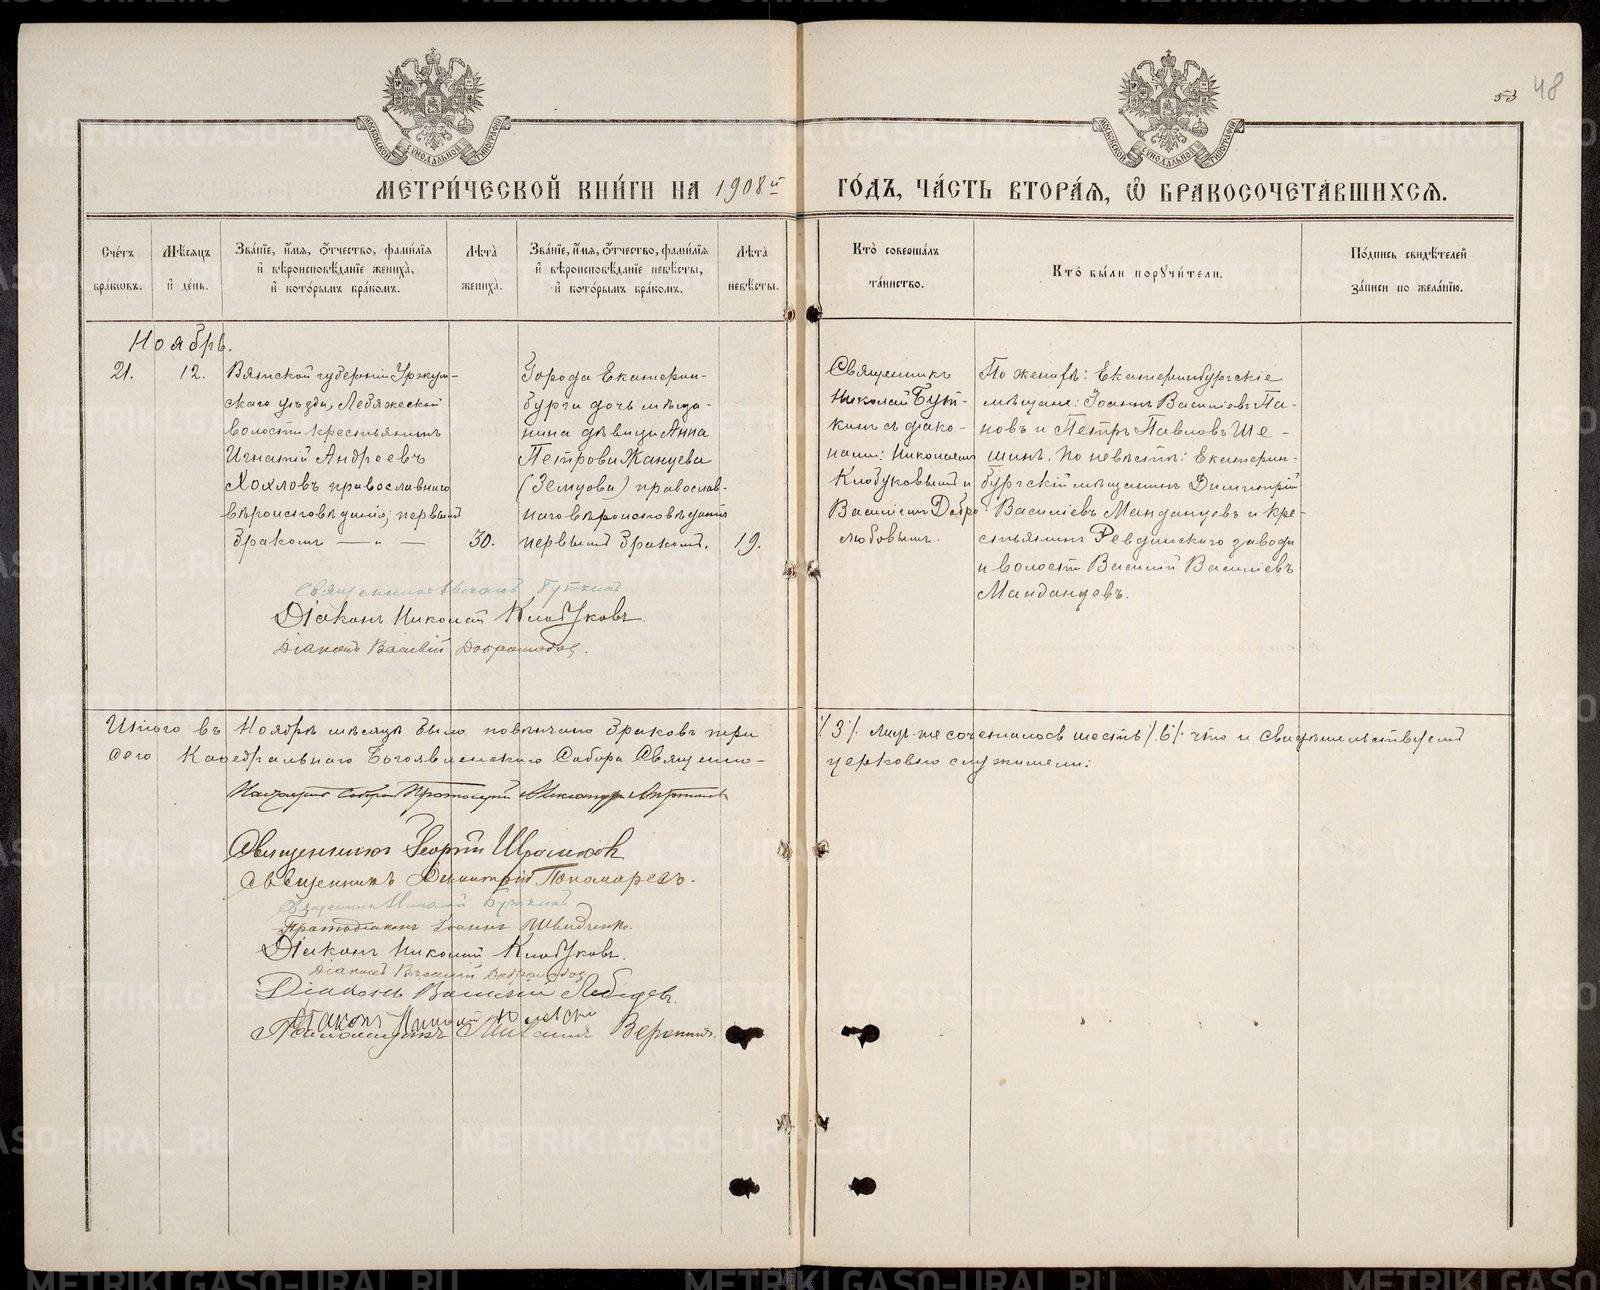 53 48
МОСКОВСКОЙ СѴНОДАЛЬНОЙ ТИПОГРАФІИ
МОСКОВСКОЙ СѴНОДАЛЬНОЙ ТИПОГРАФІИ
МЕТРИ́ЧЕСКОЙ КНИ́ГИ НА 1908й
ГО́ДЪ, ЧА́СТЬ ВТОРА́Я, Ѽ БРАКОСОЧЕТА́ВШИХСЯ.
Сче́тъ бра́кѡвъ.
Мѣ́сяцъ и҆ день.
Зва́нїе, и҆́мя, о҆́тчество, фами́лїя и҆ вѣроисповѣ́данїе жениха̀, и҆ кото́рымъ бра́комъ.
Лѣ́та жениха̀.
Зва́нїе, и҆́мя, о҆́тчество, фами́лїя и҆ вѣроисповѣ́данїе невѣ́сты, и҆ кото́рымъ бра́комъ.
Лѣ́та невѣ́сты.
Кто̀ соверша́лъ та́инство.
Кто̀ бы́ли пору́чи́тели.
По́дпись свидѣ́телей за́писи по жела́нїю.
Ноябрь.
21.
12.
Вятской губерніи Уржум-
скаго уѣзда, Лебяжской
волости крестьянинъ
Игнатій Андреевъ
Хохловъ православнаго
вѣроисповѣданія, первымъ
бракомъ — „ —
30.
Города Екатерин-
бурга дочь мѣща-
нина дѣвица Анна
Петрова Жанцева
(Земцова) православ-
наго вѣроисповѣданія
первымъ бракомъ.
19.
Священникъ
Николай Бут-
кинъ съ діако-
нами: Николаемъ
Клобуковымъ и
Василіемъ Добро-
любовымъ.
По женихѣ: Екатеринбургскіе
мѣщане: Іоаннъ Василіевъ Па-
новъ и Петръ Павловъ Ше-
шинъ. По невѣстѣ: Екатерин-
бургскій мѣщанинъ Димитрій
Василіевъ Манданцевъ и кре-
стьянинъ Ревдинскаго завода
и волости Василій Василіевъ
Манданцевъ.
Священникъ Николай Буткинъ
Діаконъ Николай Клобуковъ.
Діаконъ Василій Добролюбов.
Итого въ Ноябрѣ мѣсяцѣ было повѣнчано браковъ три /3/. Лицъ же сочеталось шесть /6/. что и свидѣтельствуемъ
сего Каѳедральнаго Богоявленскаго Собора Священно-церковно служители:
Священникъ Георгій
Священникъ Димитрій Пономаревъ.
Священникъ Николай Буткинъ
Протодіаконъ Іоаннъ Швидченко.
Діаконъ Николай Клобуковъ.
Діаконъ Василій Добролюбов
Діаконъ Василій Лебедевъ.
Діаконъ Николай
Псаломщикъ
METRIKI.GASO-URAL.RU